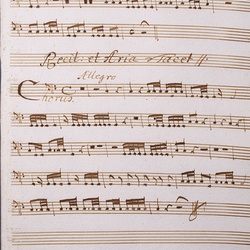 Recit: et Aria Tacet //
Allegro
Chorus.